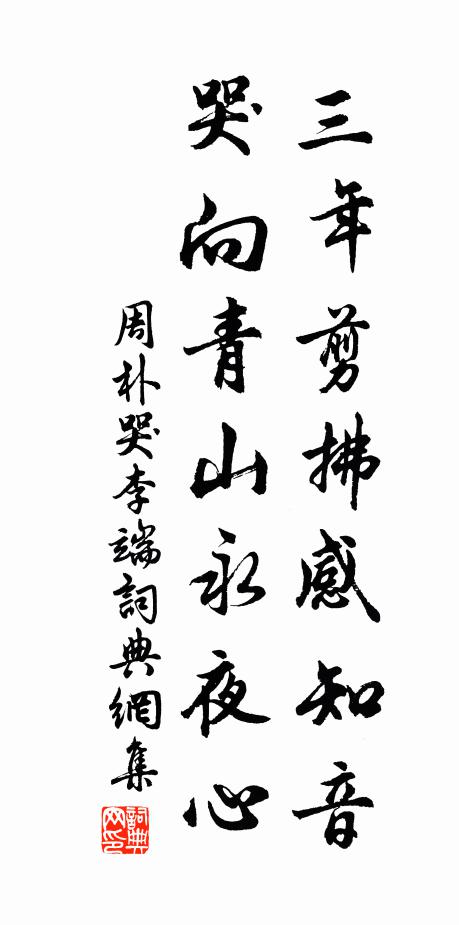 三年剪拂感知音
哭向青山永夜心
周朴哭李端詞典網集
詞典网印